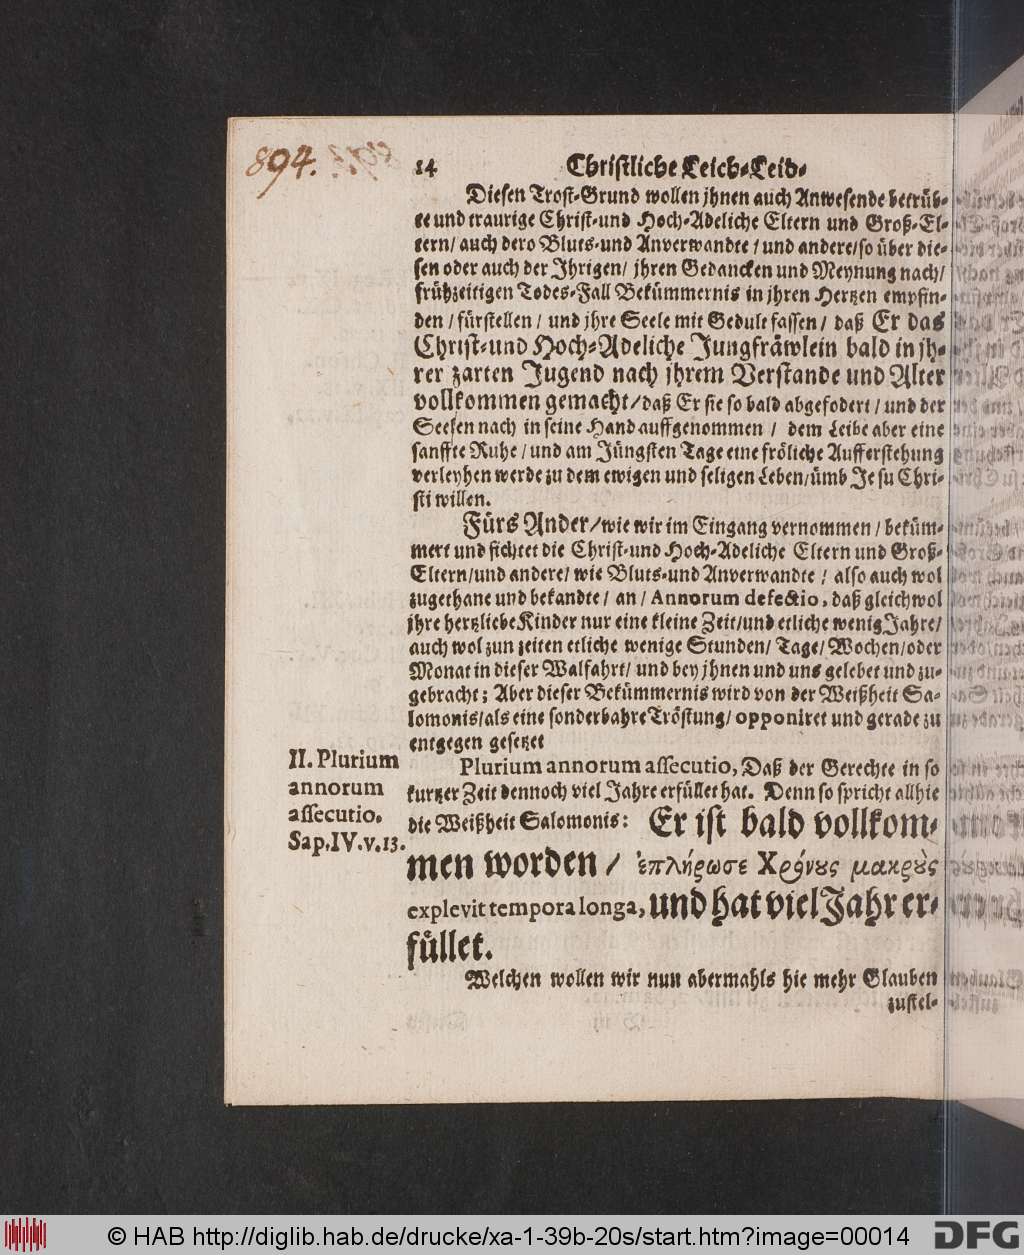 894.
14 Christliche Leich-Leid-
Diesen Trost-Grund wollen jhnen auch Anwesende betrüb-
te und traurige Christ-und Hoch-Adeliche Eltern und Groß-El-
tern/ auch dero Bluts-und Anverwandte / und andere/ so über die-
sen oder auch der Jhrigen/ jhren Gedancken und Meynung nach/
frühzeitigen Todes-Fall Bekümmernis in jhren Hertzen empfin-
den / fürstellen / und jhre Seele mit Gedult fassen / daß Er das
Christ-und Hoch-Adeliche Jungfräwlein bald in jh-
rer zarten Jugend nach jhrem Verstande und Alter
vollkommen gemacht/ daß Er sie so bald abgefodert / und der
Seelen nach in seine Hand auffgenommen / dem Leibe aber eine
sanffte Ruhe / und am Jüngsten Tage eine fröliche Aufferstehung
verleyhen werde zu dem ewigen und seligen Leben/ ümb Jesu Chri-
sti willen.
Fürs Ander/ wie wir im Eingang vernommen / beküm-
mert und fichtet die Christ-und Hoch-Adeliche Eltern und Groß-
Eltern/ und andere/ wie Bluts-und Anverwandte / also auch wol
zugethane und bekandte/ an / Annorum defectio, daß gleichwol
jhre hertzliebe Kinder nur eine kleine Zeit/ und etliche wenig Jahre/
auch wol zun zeiten etliche wenige Stunden/ Tage/ Wochen/ oder
Monat in dieser Walfahrt/ und bey jhnen und uns gelebet und zu-
gebracht; Aber dieser Bekümmernis wird von der Weißheit Sa-
lomonis/ als eine sonderbahre Tröstung/ opponiret und gerade zu
entgegen gesetzet
II. Plurium
annorum
assecutio.
Sap. IV. v. 13.
Plurium annorum assecutio, Daß der Gerechte in so
kurtzer Zeit dennoch viel Jahre erfüllet hat. Denn so spricht allhie
die Weißheit Salomonis: Er ist bald vollkom-
men worden / ἐπλήρωσε Χρόνȣς μακρȣ̀ς
explevit tempora longa, und hat viel Jahr er-
füllet.
Welchen wollen wir nun abermahls hie mehr Glauben
zustel-
© HAB http://diglib.hab.de/drucke/xa-1-39b-20s/start.htm?image=00014
DFG